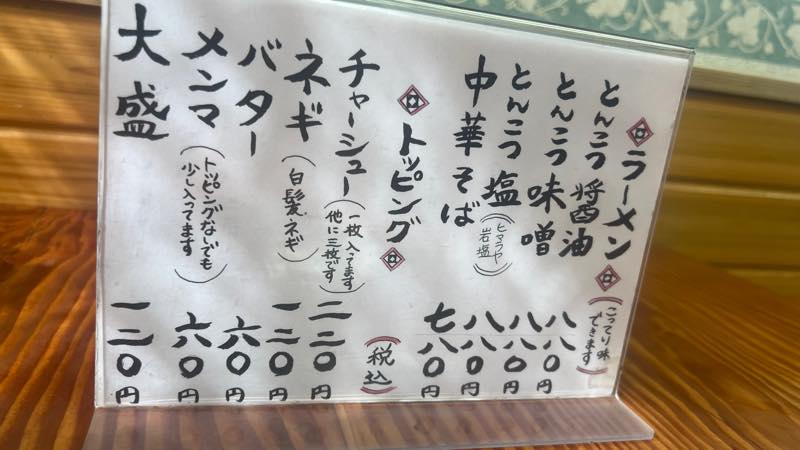 ラーメン
(こってり味できます)
とんこつ醤油 八八〇円
とんこつ味噌 八八〇円
とんこつ塩(ヒマラヤ岩塩) 八八〇円
中華そば 七八〇円
トッピング
(税込)
チャーシュー(一枚入ってます他に三枚です) 二二〇円
ネギ(白髪ネギ) 一二〇円
バター 六〇円
メンマ(トッピングなしでも少し入ってます) 六〇円
大盛 一二〇円